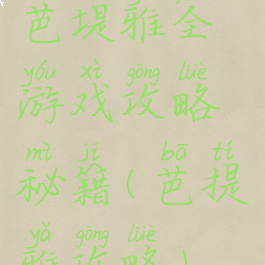 芭堤雅全
yóu xì gōng lüè
游戏攻略
mì jí bā tí
秘籍(芭提
yǎ gōng lüè
雅攻略)